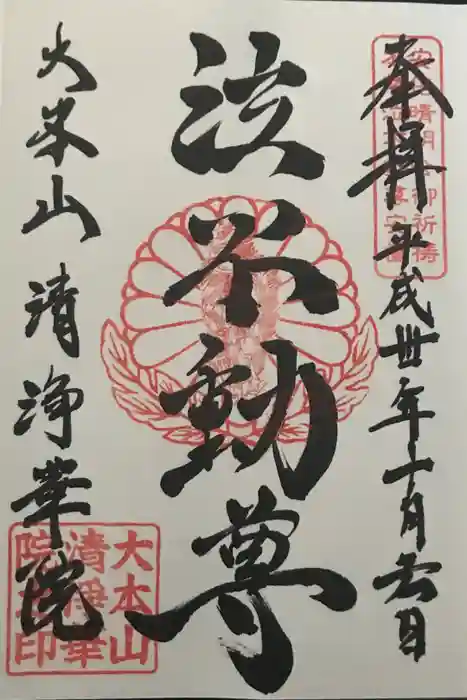 奉拝
平成卅年十月六日
泣不動尊
大本山 清浄華院
大本山
清浄華
院之印